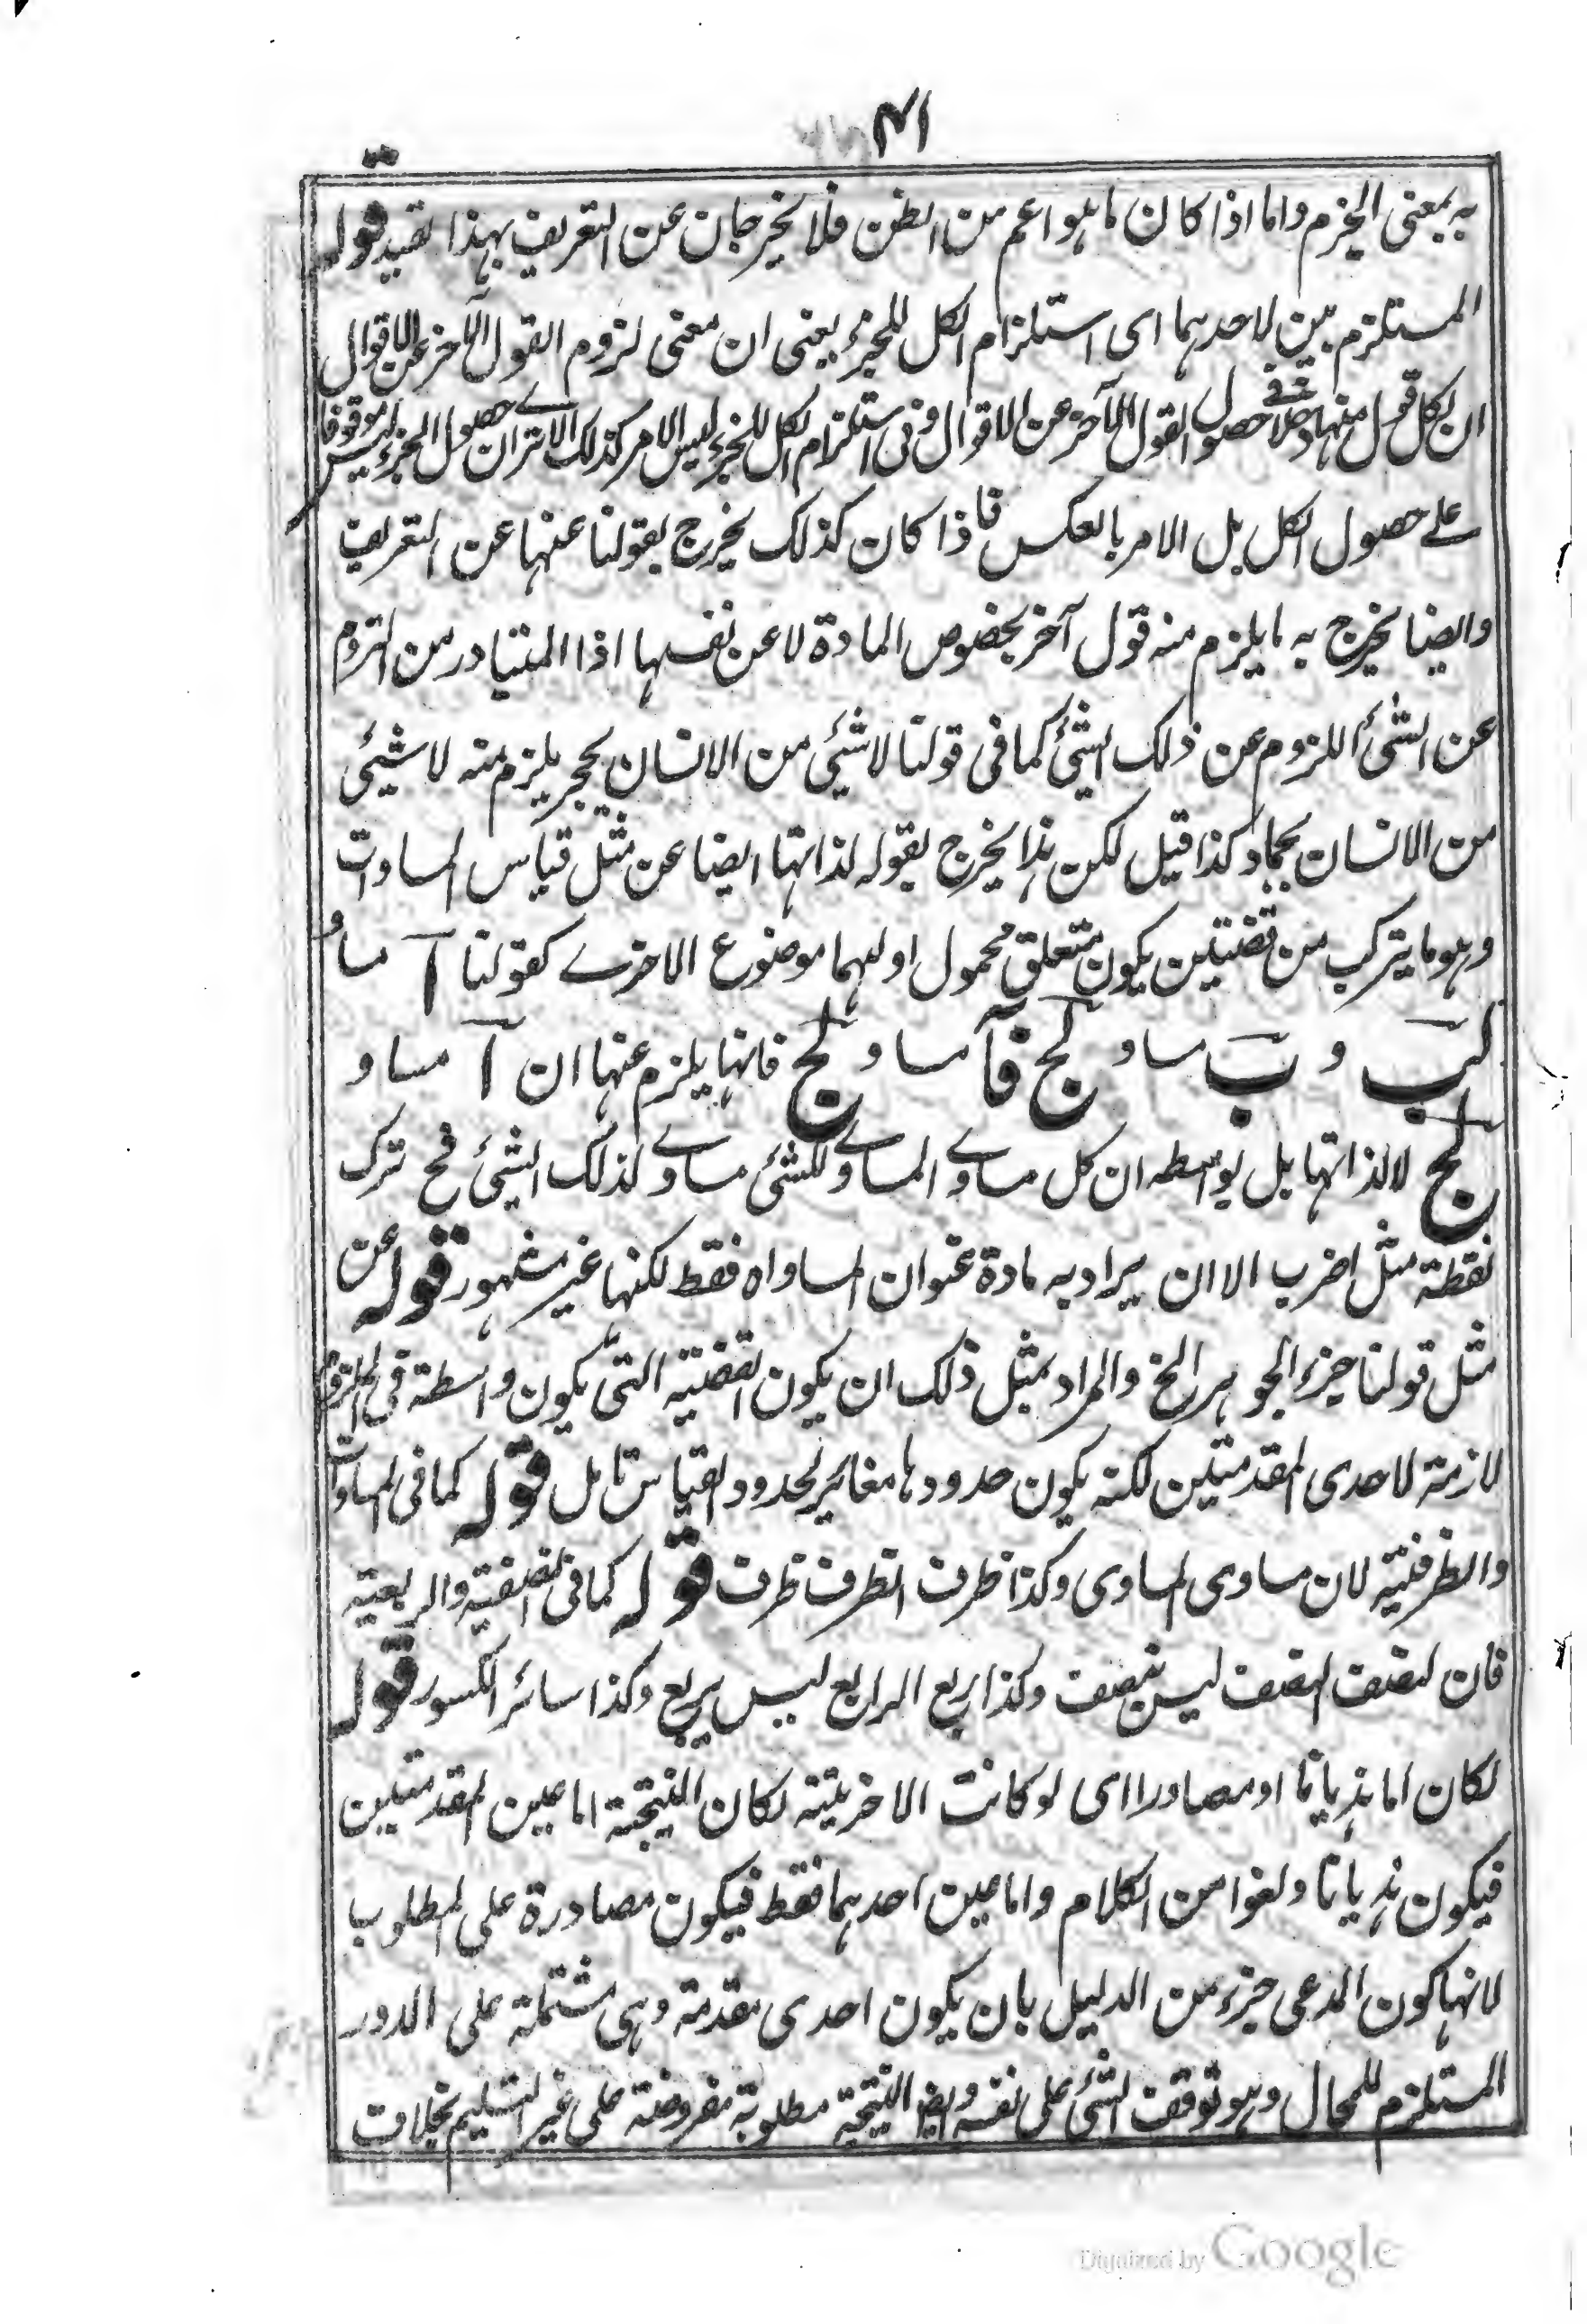 ٤١
به بمعنى الجزم واما اذا كان ما هو اعم من الظن فلا يخرجان عن التعريف بهذا القيد قوله
المستلزم بين لاحدهما اى استلزام الكل للجزء يعنى ان معنى لزوم القول الآخر عن الاقوال
ان لكل قول منها دخلا فى حصول القول الآخر عن الاقوال وفى استلزام الكل للجزء ليس الامر كذلك الا ترى ان حصول الجزء ليس موقوفا
على حصول الكل بل الامر بالعكس فاذا كان كذلك يخرج بقولنا عنها عن التعريف
وايضا يخرج به ما يلزم منه قول آخر بخصوص المادة لا عن نفسها اذا المتبادر من اللزوم
عن الشئ اللزوم عن ذلك الشئ كما فى قولنا لا شئ من الانسان بحجر يلزم منه لا شيئى
من الانسان بجماد كذا قيل لكن هذا يخرج بقوله لذاتها ايضا عن مثل قياس المساوات
وهو ما يتركب من قضيتين يكون متعلق محمول اوليهما موضوع الاخرى كقولنا آ مساو
لب و ب مساو لج فآ مساو لج فانها يلزم عنها ان آ مساو
لج لا لذاتها بل بواسطه ان كل مساوى المساوى للشئ مساوى لذلك الشئ فح ترك
نقطة مثل اضرب الا ان يراد به مادة عنوان المساواه فقط لكنها غير مشهور قوله عن
مثل قولنا جزء الجوهر الخ والمراد بمثل ذلك ان يكون القضية التى يكون واسطة فى اللزوم
لازمة لاحدى المقدمتين لكنه يكون حدودها مغاير لحدود القياس تامل قوله كما فى المساوات
والظرفية لان مساوى المساوى وكذا ظرف الظرف ظرف قوله كما فى النصفية والربعية
فان نصف النصف ليس بنصف وكذا ربع الرابع ليس بربع وكذا سائر الكسور قوله
لكان اما هذيانا او مصادرا اى لو كانت الاخريته لكان النتيجة اما عين المقدمتين
فيكون هذيانا ولغوا من الكلام واما عين احدهما فقط فيكون مصادرة على المطلوب
لانها كون المدعى جزء من الدليل بان يكون احدى مقدمة وهى مشتملة على الدور
المستلزم للمحال وهو توقف الشئ على نفسه وايضا النتيجة مطلوبة مفروضة على غير التسليم بخلاف
Digitized by Google